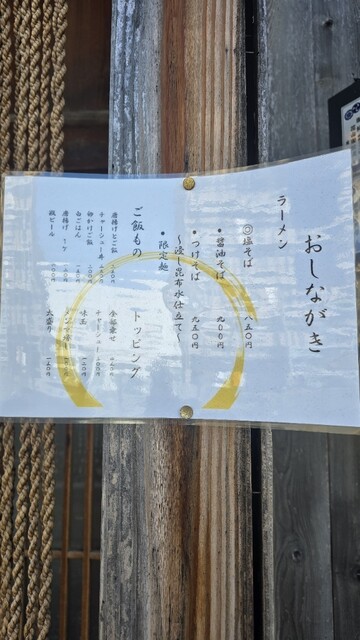 おしながき
ラーメン
◎塩そば 八五〇円
・醤油そば 九〇〇円
・つけそば 九五〇円
〜浸し昆布水仕立て〜
・限定麺
ご飯もの
唐揚げとご飯
チャーシュー丼
卵かけご飯
白ごはん
唐揚げ 1ケ
瓶ビール
トッピング
全部乗せ
チャーシュー
味玉
大盛り